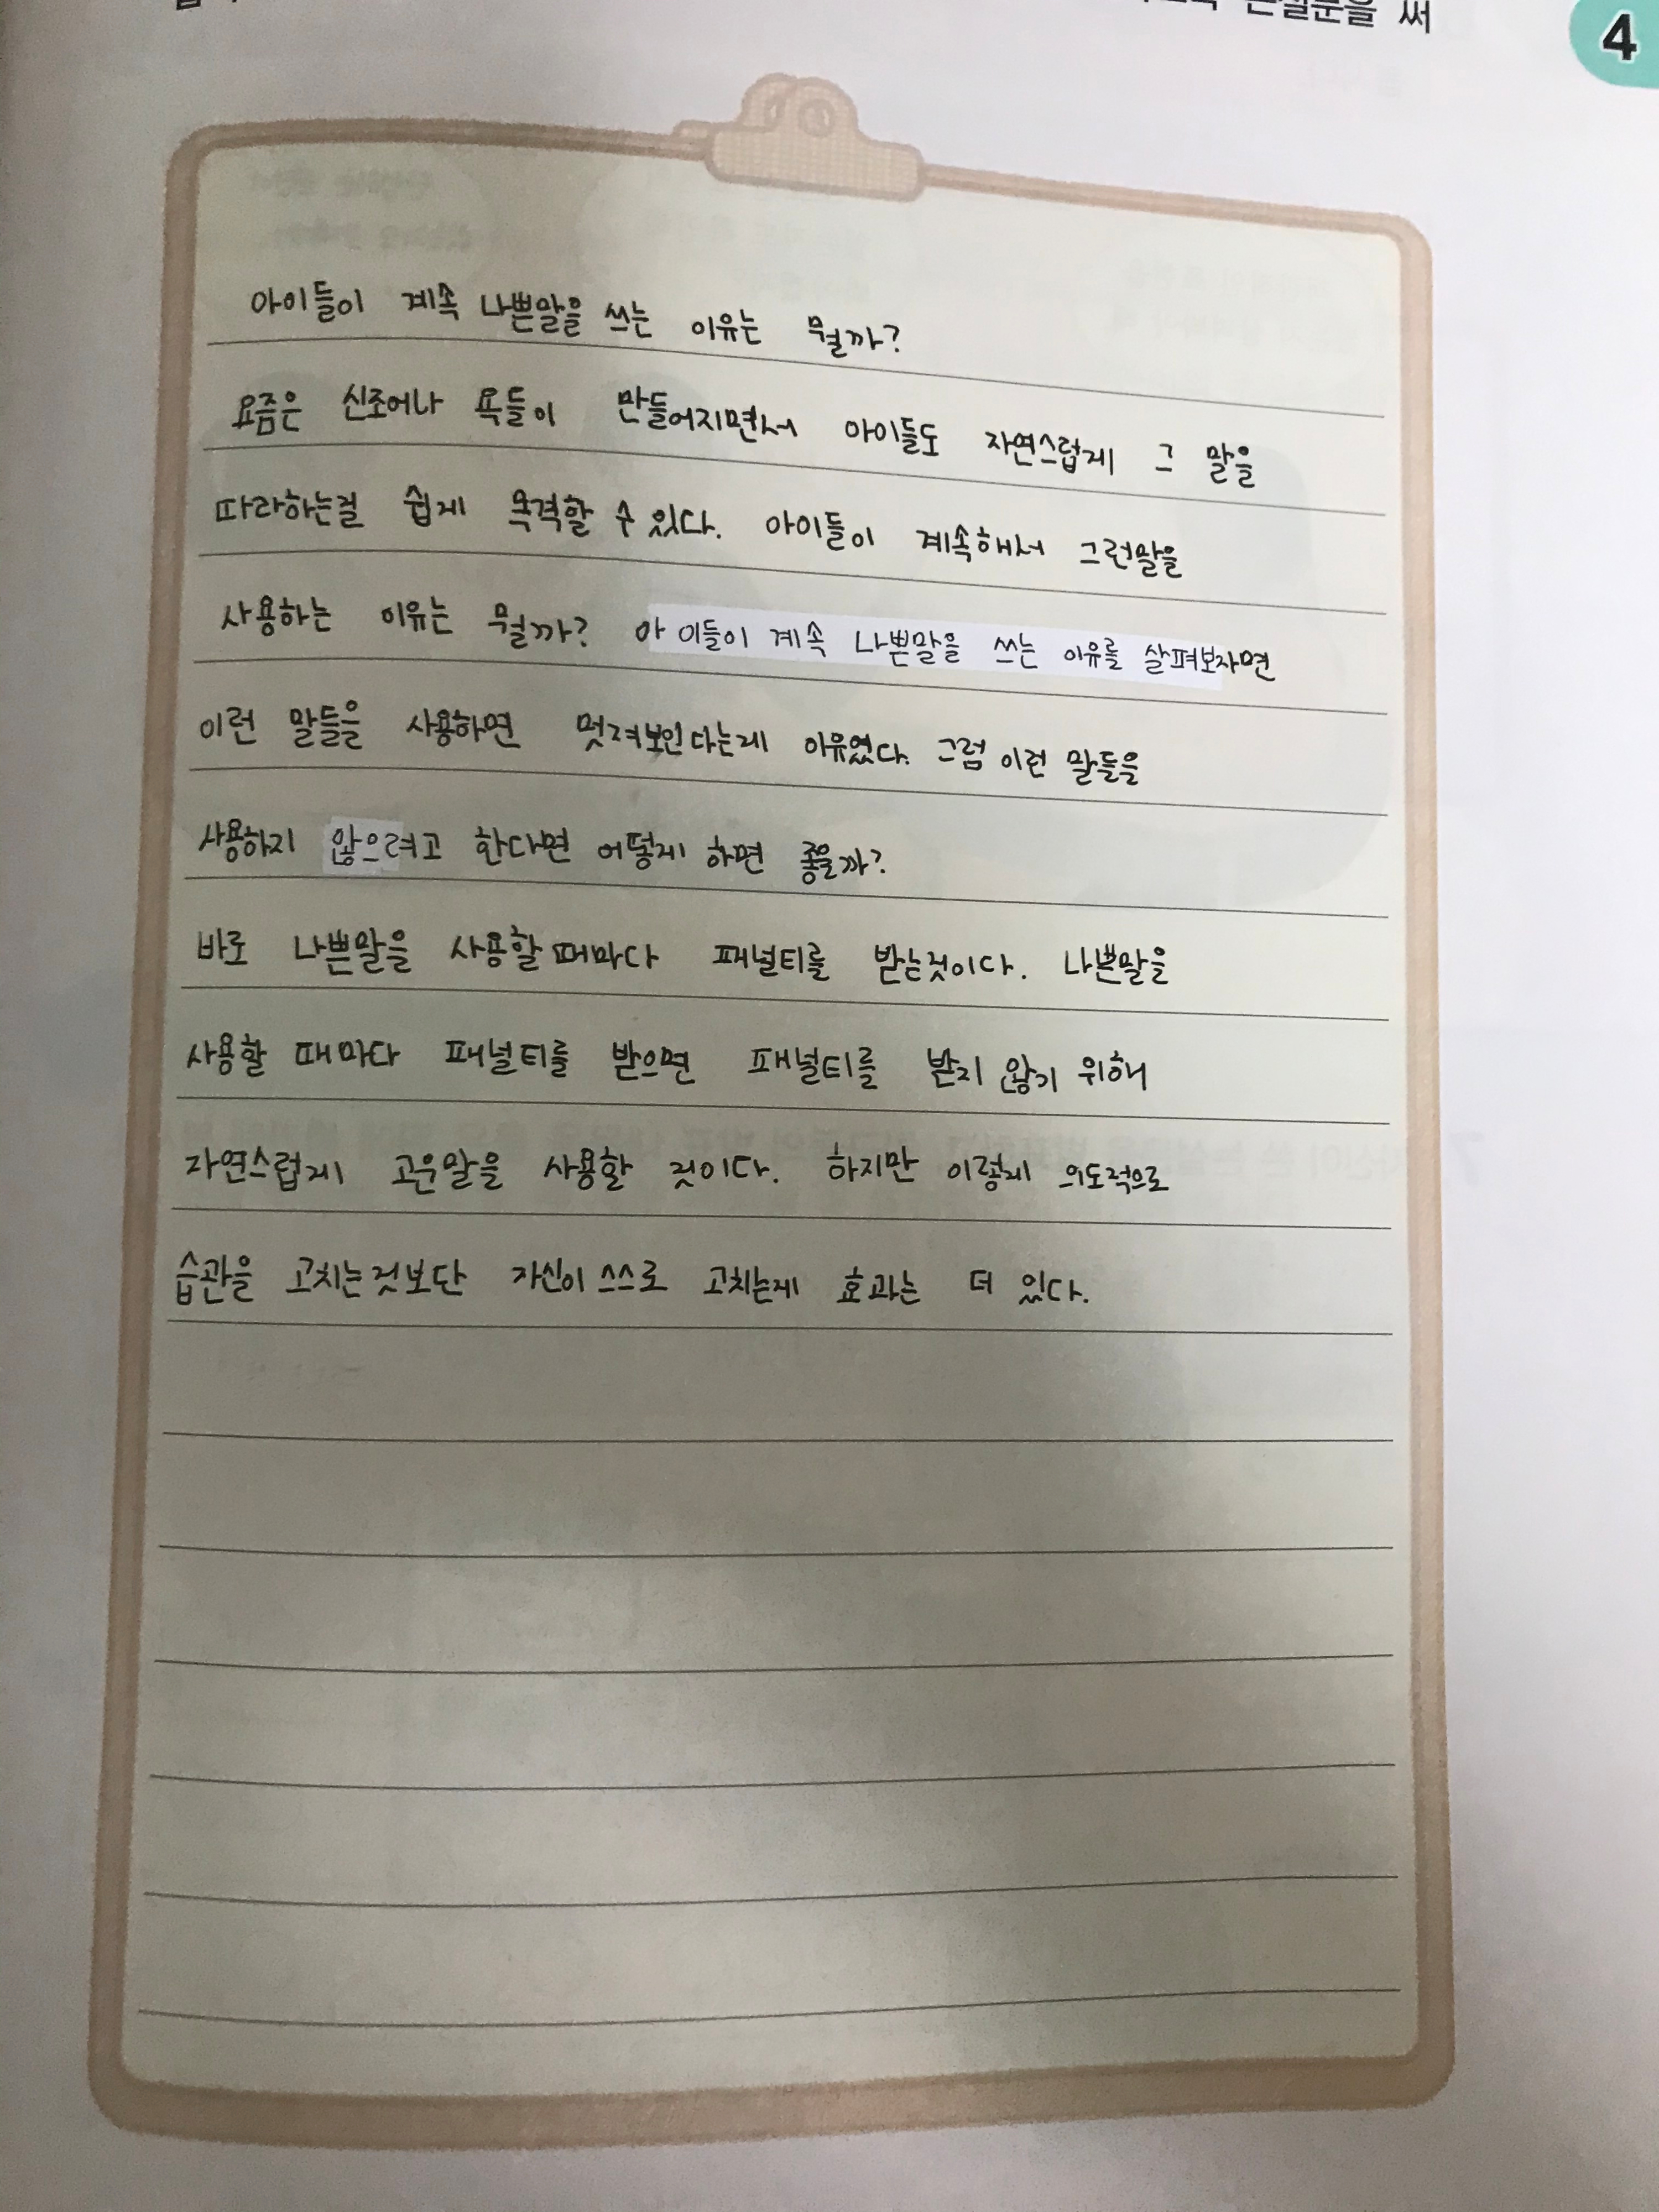 논설문을 써
4
아이들이 계속 나쁜말을 쓰는 이유는 뭘까?
요즘은 신조어나 욕들이 만들어지면서 아이들도 자연스럽게 그 말을
따라하는걸 쉽게 목격할 수 있다. 아이들이 계속해서 그런말을
사용하는 이유는 뭘까? 아이들이 계속 나쁜말을 쓰는 이유를 살펴보자면
이런 말들을 사용하면 멋져보인다는게 이유였다. 그럼 이런 말들을
사용하지 않으려고 한다면 어떻게 하면 좋을까?
바로 나쁜말을 사용할때마다 패널티를 받는것이다. 나쁜말을
사용할 때마다 패널티를 받으면 패널티를 받지 않기 위해
자연스럽게 고운말을 사용할 것이다. 하지만 이렇게 의도적으로
습관을 고치는것보단 자신이 스스로 고치는게 효과는 더 있다.